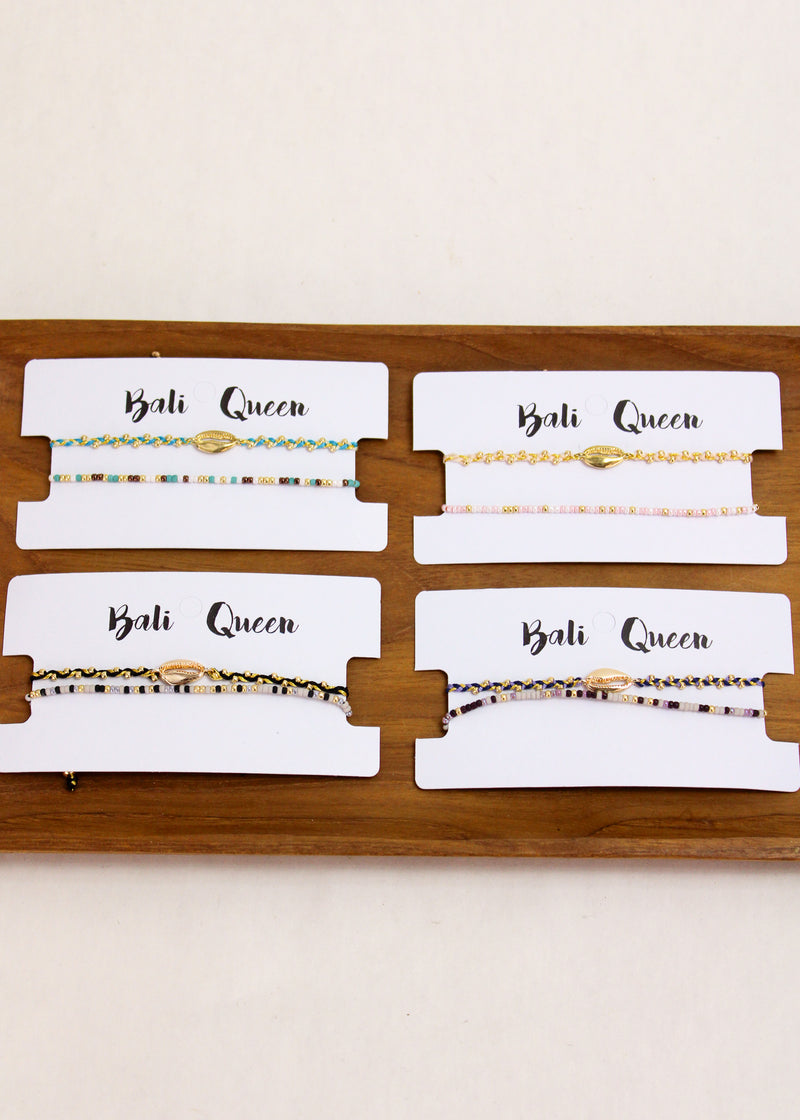 Bali Queen
Bali Queen
Bali Queen
Bali Queen